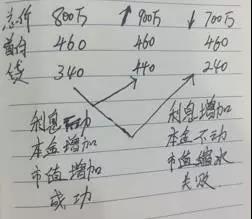 总价 800万 ↑900万 ↓700万
首付 460 460 460
贷 340 440 240
利息不动 利息增加
本金增加 本金不动
市值增加 市值缩水
成功 失败